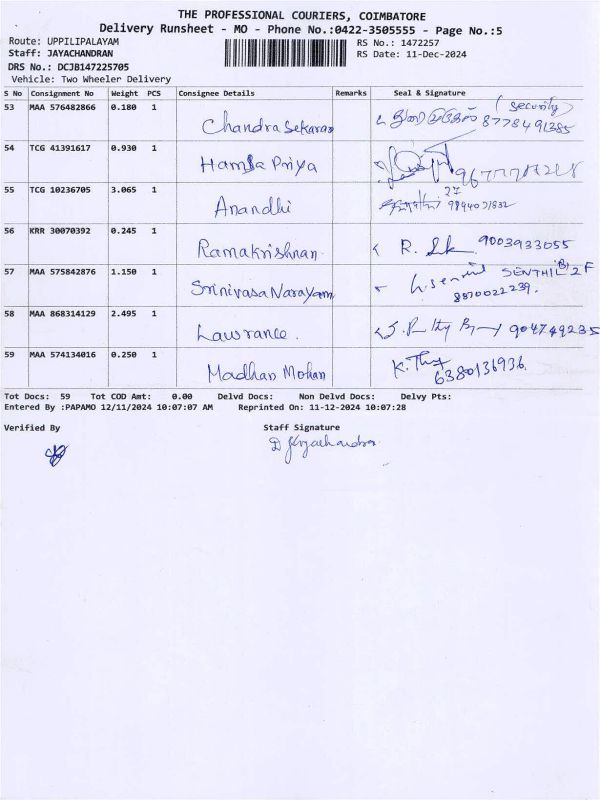 THE PROFESSIONAL COURIERS, COIMBATORE
Delivery Runsheet - MO - Phone No.:0422-3505555 - Page No.:5
Route: UPPILIPALAYAM RS No.: 1472257
Staff: JAYACHANDRAN RS Date: 11-Dec-2024
DRS No.: DCJB147225705
Vehicle: Two Wheeler Delivery
S No Consignment No Weight PCS Consignee Details Remarks Seal & Signature
53 MAA 576482866 0.180 1 Chandra Sekaran (Security) 8778491385
54 TCG 41391617 0.930 1 Hamsa Priya
55 TCG 10236705 3.065 1 Anandhi 27
56 KRR 30070392 0.245 1 Ramakrishnan R. 9003933055
57 MAA 575842876 1.150 1 Srinivasa Narayanan SENTHIL 2F
8870022239.
58 MAA 868314129 2.495 1 Lawrance. 904749235
59 MAA 574134016 0.250 1 Madhan Mohan K.
6380136936.
Tot Docs: 59 Tot COD Amt: 0.00 Delvd Docs: Non Delvd Docs: Delvy Pts:
Entered By :PAPAMO 12/11/2024 10:07:07 AM Reprinted On: 11-12-2024 10:07:28
Verified By Staff Signature